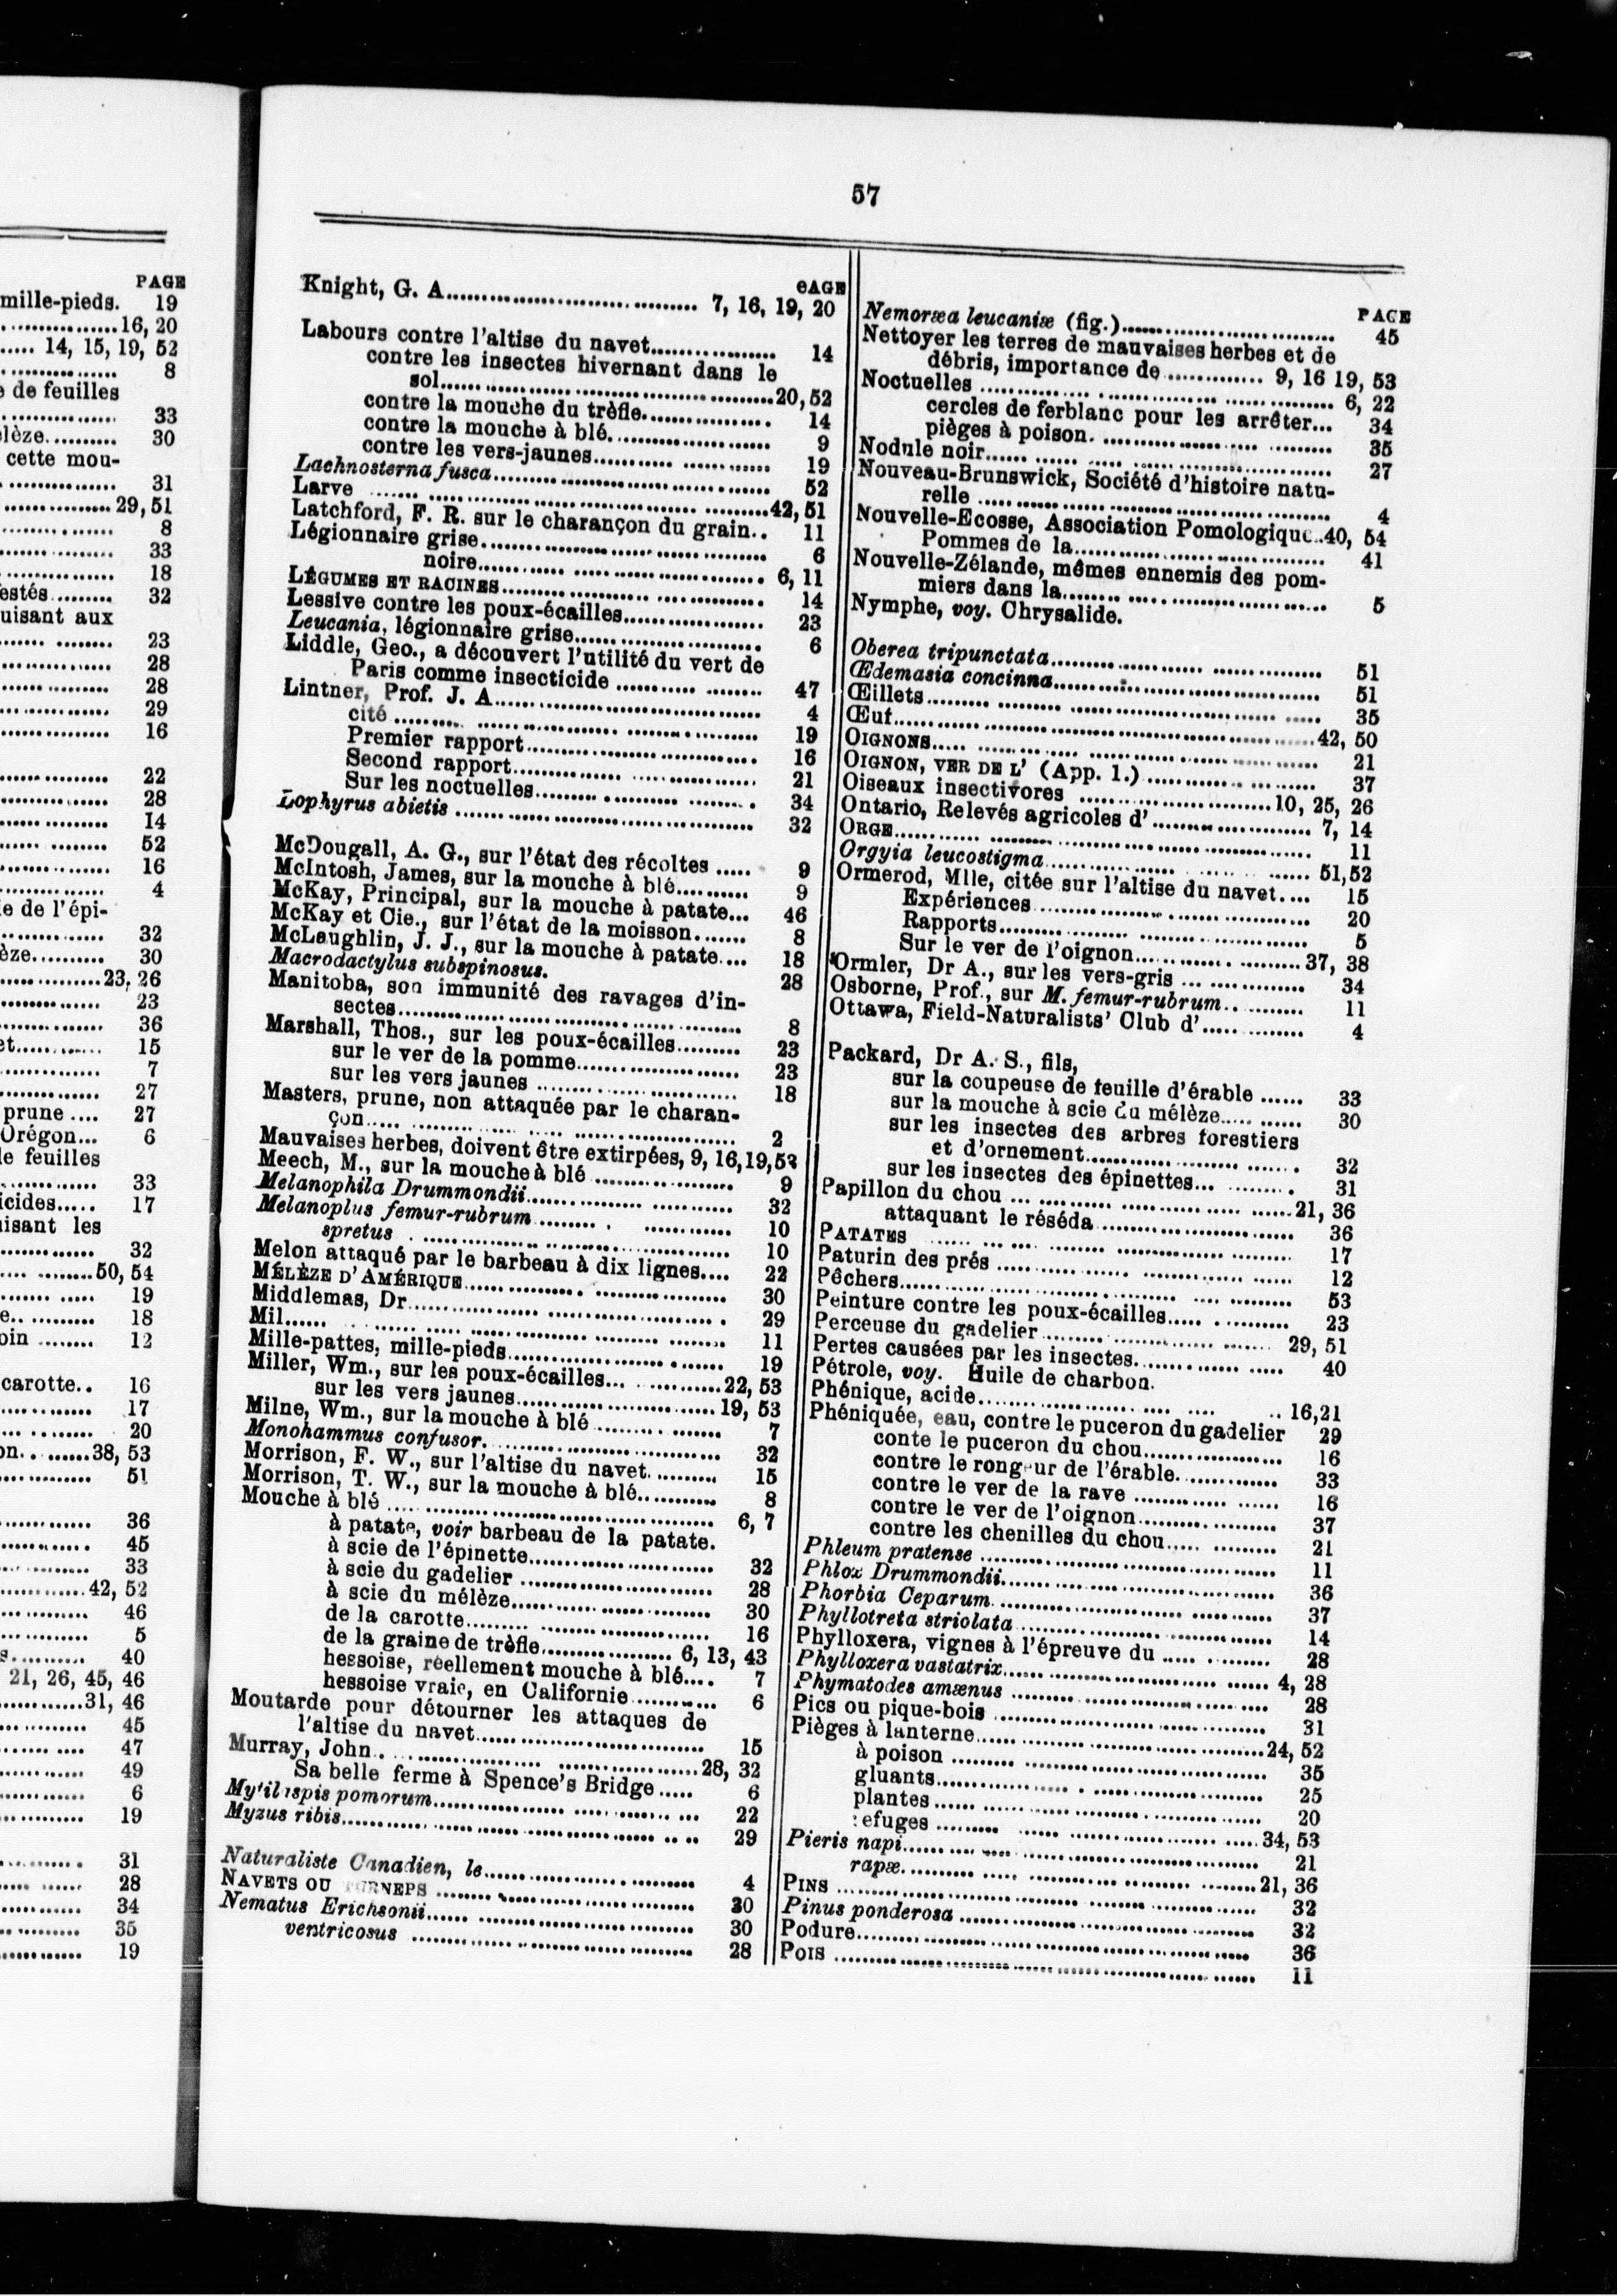 PAGE
mille-pieds. 19
16, 20
14, 15, 19, 52
8
de feuilles
33
30
cette mou-
31
29, 51
8
33
18
32
uisant aux
23
28
28
29
16
22
28
14
52
16
4
ie de l'épi-
32
30
23, 26
23
36
15
7
27
prune .... 27
Orégon... 6
le feuilles
33
icides..... 17
uisant les
32
50, 54
19
18
12
carotte.. 16
17
20
38, 53
51
36
45
33
42, 52
46
5
40
21, 26, 45, 46
31, 46
45
47
49
6
19
31
28
34
35
19
57
eAGE
Knight, G. A.................... 7, 16, 19, 20
Labours contre l'altise du navet.................. 14
contre les insectes hivernant dans le
sol.................... 20, 52
contre la mouche du trèfle.................. 14
contre la mouche à blé.................. 9
contre les vers-jaunes.................. 19
Lachnosterna fusca.................. 52
Larve .................. 42, 51
Latchford, F. R. sur le charançon du grain.. 11
Légionnaire grise.................. 6
noire.................. 6, 11
LÉGUMES ET RACINES.................. 14
Lessive contre les poux-écailles.................. 23
Leucania, légionnaire grise.................. 6
Liddle, Geo., a découvert l'utilité du vert de
Paris comme insecticide .................. 47
Lintner, Prof. J. A.................. 4
cité .................. 19
Premier rapport.................. 16
Second rapport.................. 21
Sur les noctuelles.................. 34
Lophyrus abietis .................. 32
McDougall, A. G., sur l'état des récoltes ..... 9
McIntosh, James, sur la mouche à blé.......... 9
McKay, Principal, sur la mouche à patate... 46
McKay et Cie., sur l'état de la moisson....... 8
McLaughlin, J. J., sur la mouche à patate.... 18
Macrodactylus subspinosus. 28
Manitoba, son immunité des ravages d'in-
sectes.................. 8
Marshall, Thos., sur les poux-écailles......... 23
sur le ver de la pomme.................. 23
sur les vers jaunes .................. 18
Masters, prune, non attaquée par le charan-
çon.................. 2
Mauvaises herbes, doivent être extirpées, 9, 16, 19, 53
Meech, M., sur la mouche à blé .................. 9
Melanophila Drummondii.................. 32
Melanoplus femur-rubrum.................. 10
spretus .................. 10
Melon attaqué par le barbeau à dix lignes.... 22
MÉLÈZE D'AMÉRIQUE.................. 30
Middlemas, Dr.................. 29
Mil.................. 11
Mille-pattes, mille-pieds.................. 19
Miller, Wm., sur les poux-écailles... ............ 22, 53
sur les vers jaunes.................. 19, 53
Milne, Wm., sur la mouche à blé .................. 7
Monohammus confusor.................. 32
Morrison, F. W., sur l'altise du navet.......... 15
Morrison, T. W., sur la mouche à blé............ 8
Mouche à blé .................. 6, 7
à patate, voir barbeau de la patate.
à scie de l'épinette.................. 32
à scie du gadelier .................. 28
à scie du mélèze.................. 30
de la carotte.................. 16
de la graine de trèfle.................. 6, 13, 43
hessoise, réellement mouche à blé.... 7
hessoise vraie, en Californie............ 6
Moutarde pour détourner les attaques de
l'altise du navet.................. 15
Murray, John.................. 28, 32
Sa belle ferme à Spence's Bridge ..... 6
Mytilaspis pomorum.................. 22
Myzus ribis.................. 29
Naturaliste Canadien, le.................. 4
NAVETS OU TURNEPS .................. 30
Nematus Erichsonii.................. 30
ventricosus .................. 28
PAGE
Nemoræa leucaniæ (fig.).................. 45
Nettoyer les terres de mauvaises herbes et de
débris, importance de ............. 9, 16 19, 53
Noctuelles .................. 6, 22
cercles de ferblanc pour les arrêter... 34
pièges à poison. .................. 35
Nodule noir.................. 27
Nouveau-Brunswick, Société d'histoire natu-
relle .................. 4
Nouvelle-Ecosse, Association Pomologique..40, 54
Pommes de la.................. 41
Nouvelle-Zélande, mêmes ennemis des pom-
miers dans la.................. 5
Nymphe, voy. Chrysalide.
Oberea tripunctata.................. 51
Œdemasia concinna.................. 51
Œillets.................. 35
Œuf.................. 42, 50
OIGNONS.................. 21
OIGNON, VER DE L' (App. 1.).................. 37
Oiseaux insectivores .................. 10, 25, 26
Ontario, Relevés agricoles d'.................. 7, 14
ORGE.................. 11
Orgyia leucostigma.................. 51,52
Ormerod, Mlle, citée sur l'altise du navet.... 15
Expériences.................. 20
Rapports.................. 5
Sur le ver de l'oignon.................. 37, 38
Ormler, Dr A., sur les vers-gris .................. 34
Osborne, Prof., sur M. femur-rubrum............ 11
Ottawa, Field-Naturalists' Club d'.................. 4
Packard, Dr A. S., fils,
sur la coupeuse de feuille d'érable ...... 33
sur la mouche à scie du mélèze..... ...... 30
sur les insectes des arbres forestiers
et d'ornement.................. 32
sur les insectes des épinettes... .......... 31
Papillon du chou .................. 21, 36
attaquant le réséda.................. 36
PATATES .................. 17
Paturin des prés .................. 12
Pêchers.................. 53
Peinture contre les poux-écailles..... .......... 23
Perceuse du gadelier.................. 29, 51
Pertes causées par les insectes.................. 40
Pétrole, voy. Huile de charbon.
Phénique, acide.................. 16,21
Phéniquée, eau, contre le puceron du gadelier 29
conte le puceron du chou.................. 16
contre le rongeur de l'érable.............. 33
contre le ver de la rave .................. 16
contre le ver de l'oignon.................. 37
contre les chenilles du chou..... .......... 21
Phleum pratense .................. 11
Phlox Drummondii.................. 36
Phorbia Ceparum.................. 37
Phyllotreta striolata.................. 14
Phylloxera, vignes à l'épreuve du .............. 28
Phylloxera vastatrix.................. 4, 28
Phymatodes amænus .................. 28
Pics ou pique-bois .................. 31
Pièges à lanterne.................. 24, 52
à poison .................. 35
gluants.................. 25
plantes .................. 20
refuges .................. 34, 53
Pieris napi.................. 21
rapæ.................. 21, 36
PINS .................. 32
Pinus ponderosa .................. 32
Podure.................. 36
POIS .................. 11